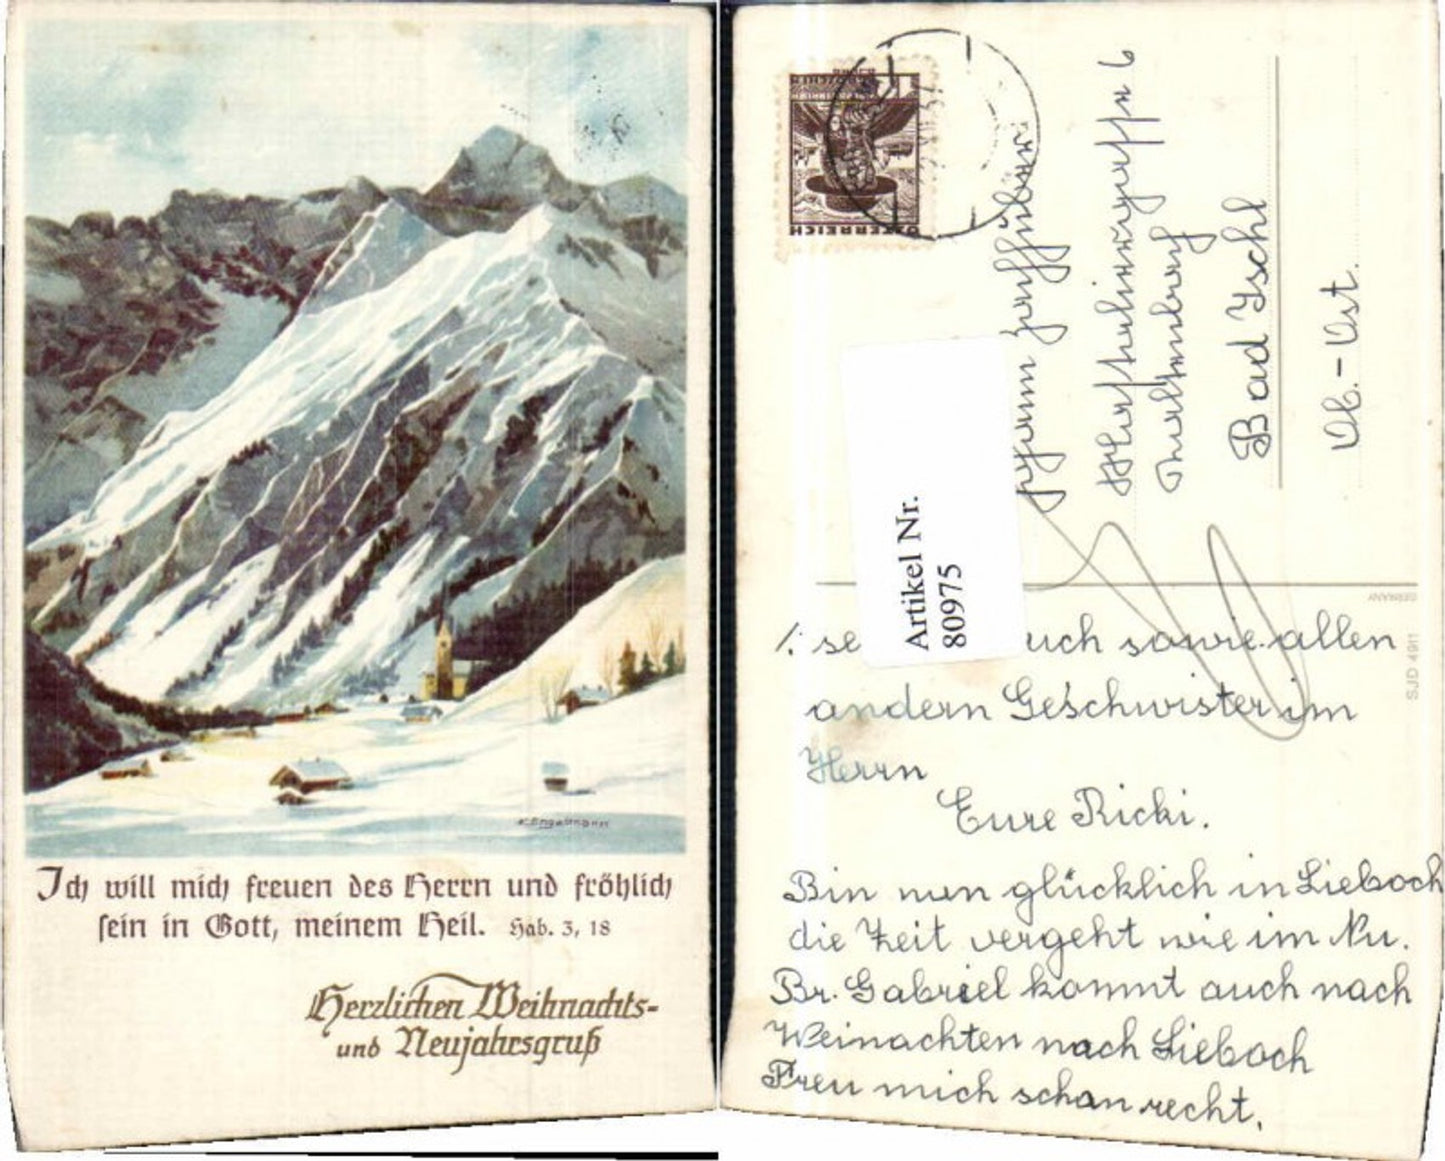 Ich will mich freuen des Herrn und fröhlich
sein in Gott, meinem Heil. Hab. 3, 18
Herzlichen Weihnachts-
und Neujahrsgruß
ÖSTERREICH
6
Bad Ischl
Ob.-Öst.
Artikel Nr.
80975
GERMANY
SJD 4911
uch sowie allen
andern Geschwister im
Herrn
Eure Ricki.
Bin nun glücklich in Lieboch
die Zeit vergeht wie im Nu.
Br. Gabriel kommt auch nach
Weinachten nach Lieboch
Freu mich schon recht.